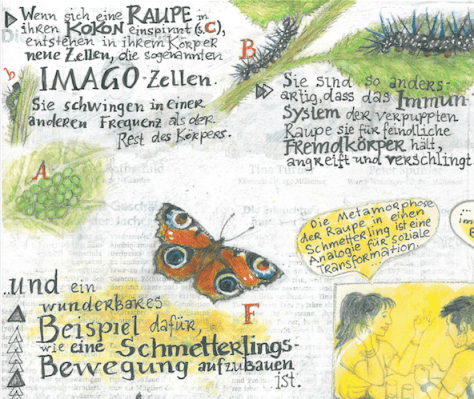 Wenn sich eine RAUPE in
ihren KOKON einspinnt (s.C),
entstehen in ihrem Körper
neue Zellen, die sogenannten
IMAGO-Zellen.
Sie schwingen in einer
anderen Frequenz als der
Rest des Körpers.
b
B
Sie sind so anders-
artig, dass das Immun-
System der verpuppten
Raupe sie für feindliche
Fremdkörper hält,
angreift und verschlingt
A
F
Die Metamorphose
der Raupe in einen
Schmetterling ist eine
Analogie für soziale
Transformation...
...und ein
wunderbares
Beispiel dafür,
wie eine Schmetterlings-
Bewegung aufzubauen
ist.